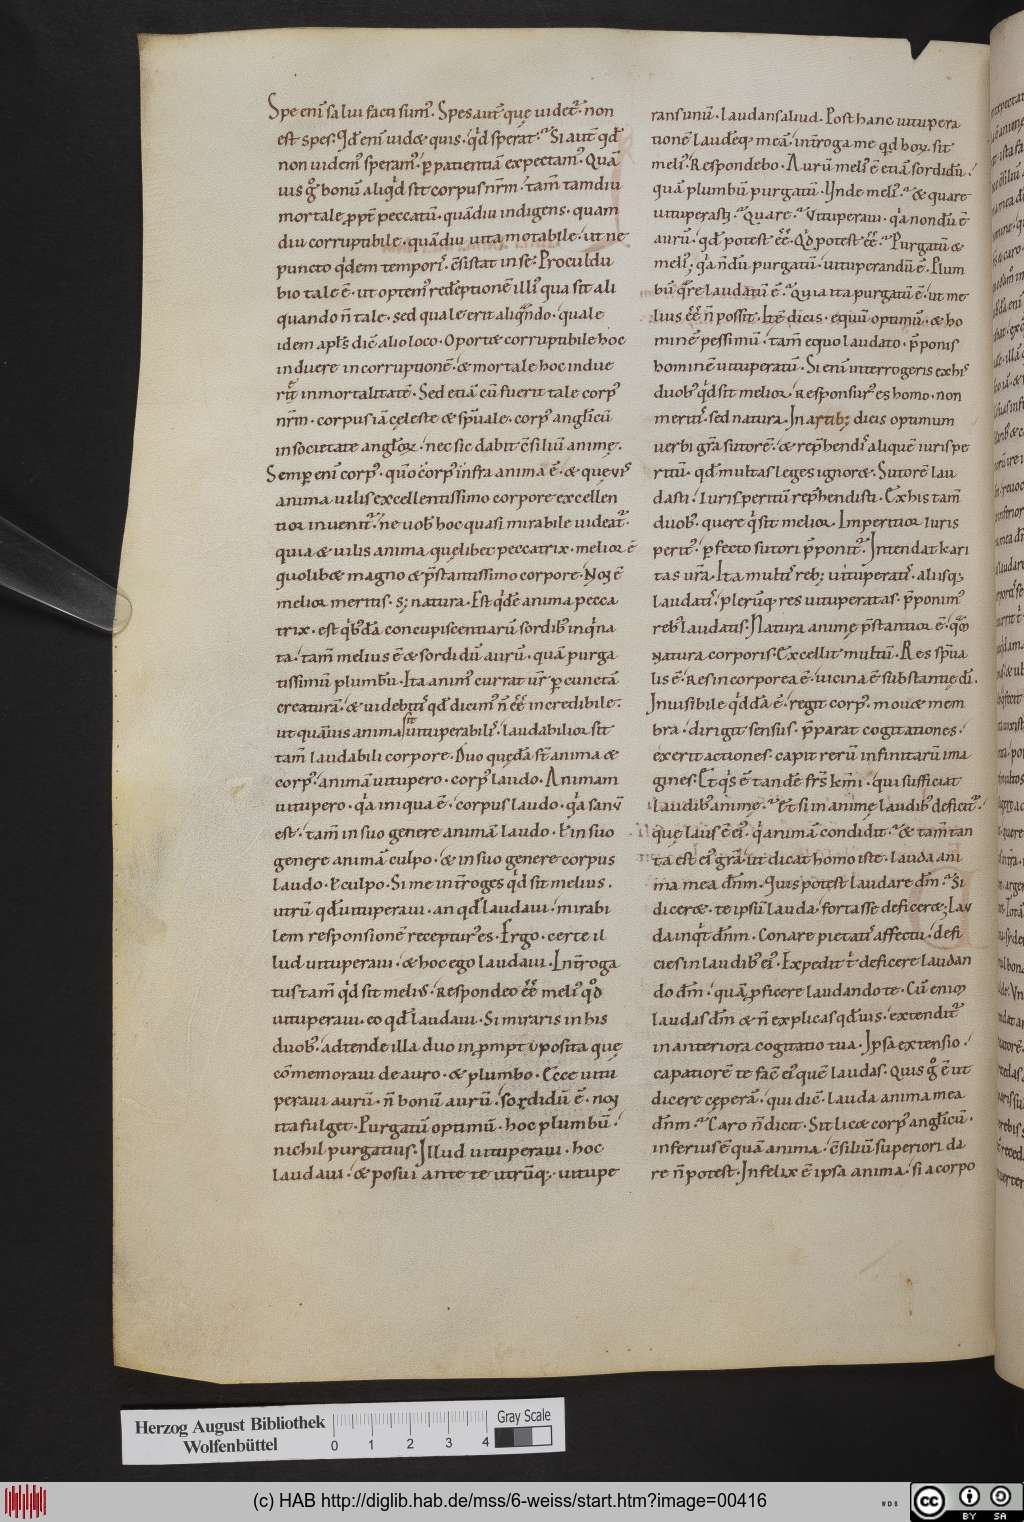 Spe eni̅ salui facti sum᷒. Spes aut̅ quę uidet᷑. non
est spes. Qđ eni̅ uid& quis. qͥd sperat.᷉ Si aut̅ qđ
non uidem᷒ speram᷒. ꝑ patientia̅ expectam᷒. Qua̅
uis gͦ bonu̅ aliqͥd sit corpus nr̅m. tam̅ tamdiu
mortale ꝓpt̅ peccatu̅. qua̅diu indigens. quam
diu corruptibile. qua̅diu uita motabile. ut ne
puncto qͥdem tempor᷒. c̅sistat in se. Procul du
bio tale e̅. ut optem᷒ rede̅ptione̅ illi᷒ qua sit ali
quando n̅ tale. sed quale erit aliqͣndo. quale
idem apl̅s dic̅ alio loco. Oport& corruptibile hoc
induere incorruptione̅. & mortale hoc indue
re inmortalitate̅. Sed etia̅ cu̅ fuerit tale corp᷒
nr̅m. corpus ia̅ cęleste & spu̅ale. corp᷒ anglicu̅
in societate angl̅oꝝ. nec sic dabit c̅siliu̅ animę.
Semꝑ eni̅ corp᷒. quo̅ corp᷒ infra anima e̅. & quęuis
anima uilis excellentissimo corpore excellen
tior inuenit᷑. ne uob᷒ hoc quasi mirabile uideat᷑.
quia & uilis anima quęlibet peccatrix. melior e̅
quolib& magno & p̅stantissimo corpore. Non e̅
melior meritis. s; natura. Est qͥde̅ anima pecca
trix. est qͥb᷒da̅ concupiscentiaru̅ sordib᷒ inqͥna
ta. tam̅ melius e̅ & sordidu̅ auru̅. qua̅ purga
tissimu̅ plumbu̅. Ita anim᷒ currat ur̅ ꝑ cuncta̅
creatura̅. & uidebit᷒ qđ dicim᷒ n̅ ee̅ incredibile.
ut qua̅uis anima sit uituperabilis. laudabilior sit
tam̅ laudabili corpore. Duo quęda̅ st̅ anima &
corp᷒. anima̅ uitupero. corp᷒ laudo. Animam
uitupero. qͥa iniqua e̅. corpus laudo. qͥa sanu̅
est. tam̅ in suo genere anima̅ laudo. ł in suo
genere anima̅ culpo. & in suo genere corpus
laudo. ł culpo. Si me int̅roges qͥd sit melius.
utru̅ qđ uituperaui. an qđ laudaui. mirabi
lem responsione̅ receptur᷒ es. Ergo. certe il
lud uituperaui. & hoc ego laudaui. Int̅roga
tus tam̅ qͥd sit meli᷒. Respondeo ee̅ meli᷒ qͦd
uituperaui. eo qđ laudaui. Si miraris in his
duob᷒. adtende illa duo in promptu posita quę
co̅memoraui de auro. & plumbo. Ecce uitu
peraui auru̅. n̅ bonu̅ auru̅. sordidu̅ e̅. non
ita fulget. Purgatu̅ optimu̅. hoc plumbu̅.
nichil purgatius. Illud uituperaui. hoc
laudaui. & posui ante te utru̅q;. uitupe
rans unu̅. laudans aliud. Post hanc uitupera
tione̅ laude̅q; mea̅. int̅roga me qđ hoꝝ sit
meli᷒. Respondebo. Auru̅ meli᷒ e̅ etia̅ sordidu̅.
qua̅ plumbu̅ purgatu̅. Unde meli᷒.᷉ & quare
uituperasti.᷉ Quare.᷉ Vituperaui. qͥa nondu̅ e̅
auru̅. qđ potest ee̅. Qͦd potest ee̅.᷉ Purgatu̅ &
meli᷒. qͥa n̅du̅ purgatu̅. uituperandu̅ e̅. Plum
bu̅ qͣre laudatu̅ e̅.᷉ Quia ita purgatu̅ e̅. ut me
lius ee̅ n̅ possit. Ite̅ dicis. equu̅ optimu̅. & ho
mine̅ pessimu̅. tam̅ equo laudato. p̅ponis
homine̅ uituperatu̅. Si eni̅ interrogeris ex his
duob᷒ qͥd sit melior. responsur᷒ es homo. non
merit᷒. sed natura. In artib; dicis optimum
uerbi gr̅a sutore̅. & rep̅hendis᷒ alique̅ iuris pe
ritu̅. qđ multas leges ignor&. Sutore̅ lau
dasti. Iuris peritu̅ rep̅hendisti. Ex his tam̅
duob᷒. quere qͥ sit melior. Imperitior iuris
perit᷒. ꝑfecto sutori p̅ponit᷑. Intendat kari
tas ur̅a. Ita mult᷒ reb; uituperat᷒. aliisq;
laudat᷒. pleru̅q; res uituperatas. p̅ponim᷒
reb᷒ laudatis. Natura animę p̅stantior e̅. qͣm
natura corporis. Excellit multu̅. Res sp̅ua
lis e̅. Res incorporea e̅. uicina e̅ substantię di̅.
Inuisibile qͥdda̅ e̅. regit corp᷒. mou& mem
bra. dirigit sensus. p̅parat cogitationes.
exerit actiones. capit reru̅ infinitaru̅ ima
gines. Et qͥs e̅ tande̅ fr̅s km̅i. qui sufficiat
laudib᷒ animę.᷉ Et si in animę laudib᷒ deficit᷑.
quę laus e̅ ei᷒. qͥ anima̅ condidit.᷉ & tam̅ tan
ta est ei᷒ gr̅a. ut dicat homo iste. lauda ani
ma mea dn̅m. Quis potest laudare dn̅m.᷉ Si
dicer&. te ipsu̅ lauda. fortasse deficer&. Lau
da inqͥt dn̅m. Conare pietat᷒ affectu. defi
cies in laudib᷒ ei᷒. Expedit t̅ deficere laudan
do dn̅m. qua̅ ꝓficere laudando te. Cu̅ enim
laudas dm̅ & n̅ explicas qđ uis. extendit᷑
in anteriora cogitatio tua. Ipsa extensio.
capatiore̅ te fac̅ ei᷒ que̅ laudas. Quis gͦ e̅ ut
dicere cęperat̅. qui dic̅. lauda anima mea
dn̅m.᷉ Caro n̅ dicit. Sit lic& corp᷒ anglicu̅.
inferius e̅ qua̅ anima. c̅siliu̅ superiori da
re n̅ potest. Infelix e̅ ipsa anima. si a corpo
Herzog August Bibliothek
Wolfenbüttel
0 1 2 3 4
Gray Scale
(c) HAB http://diglib.hab.de/mss/6-weiss/start.htm?image=00416
WDB
cc BY SA